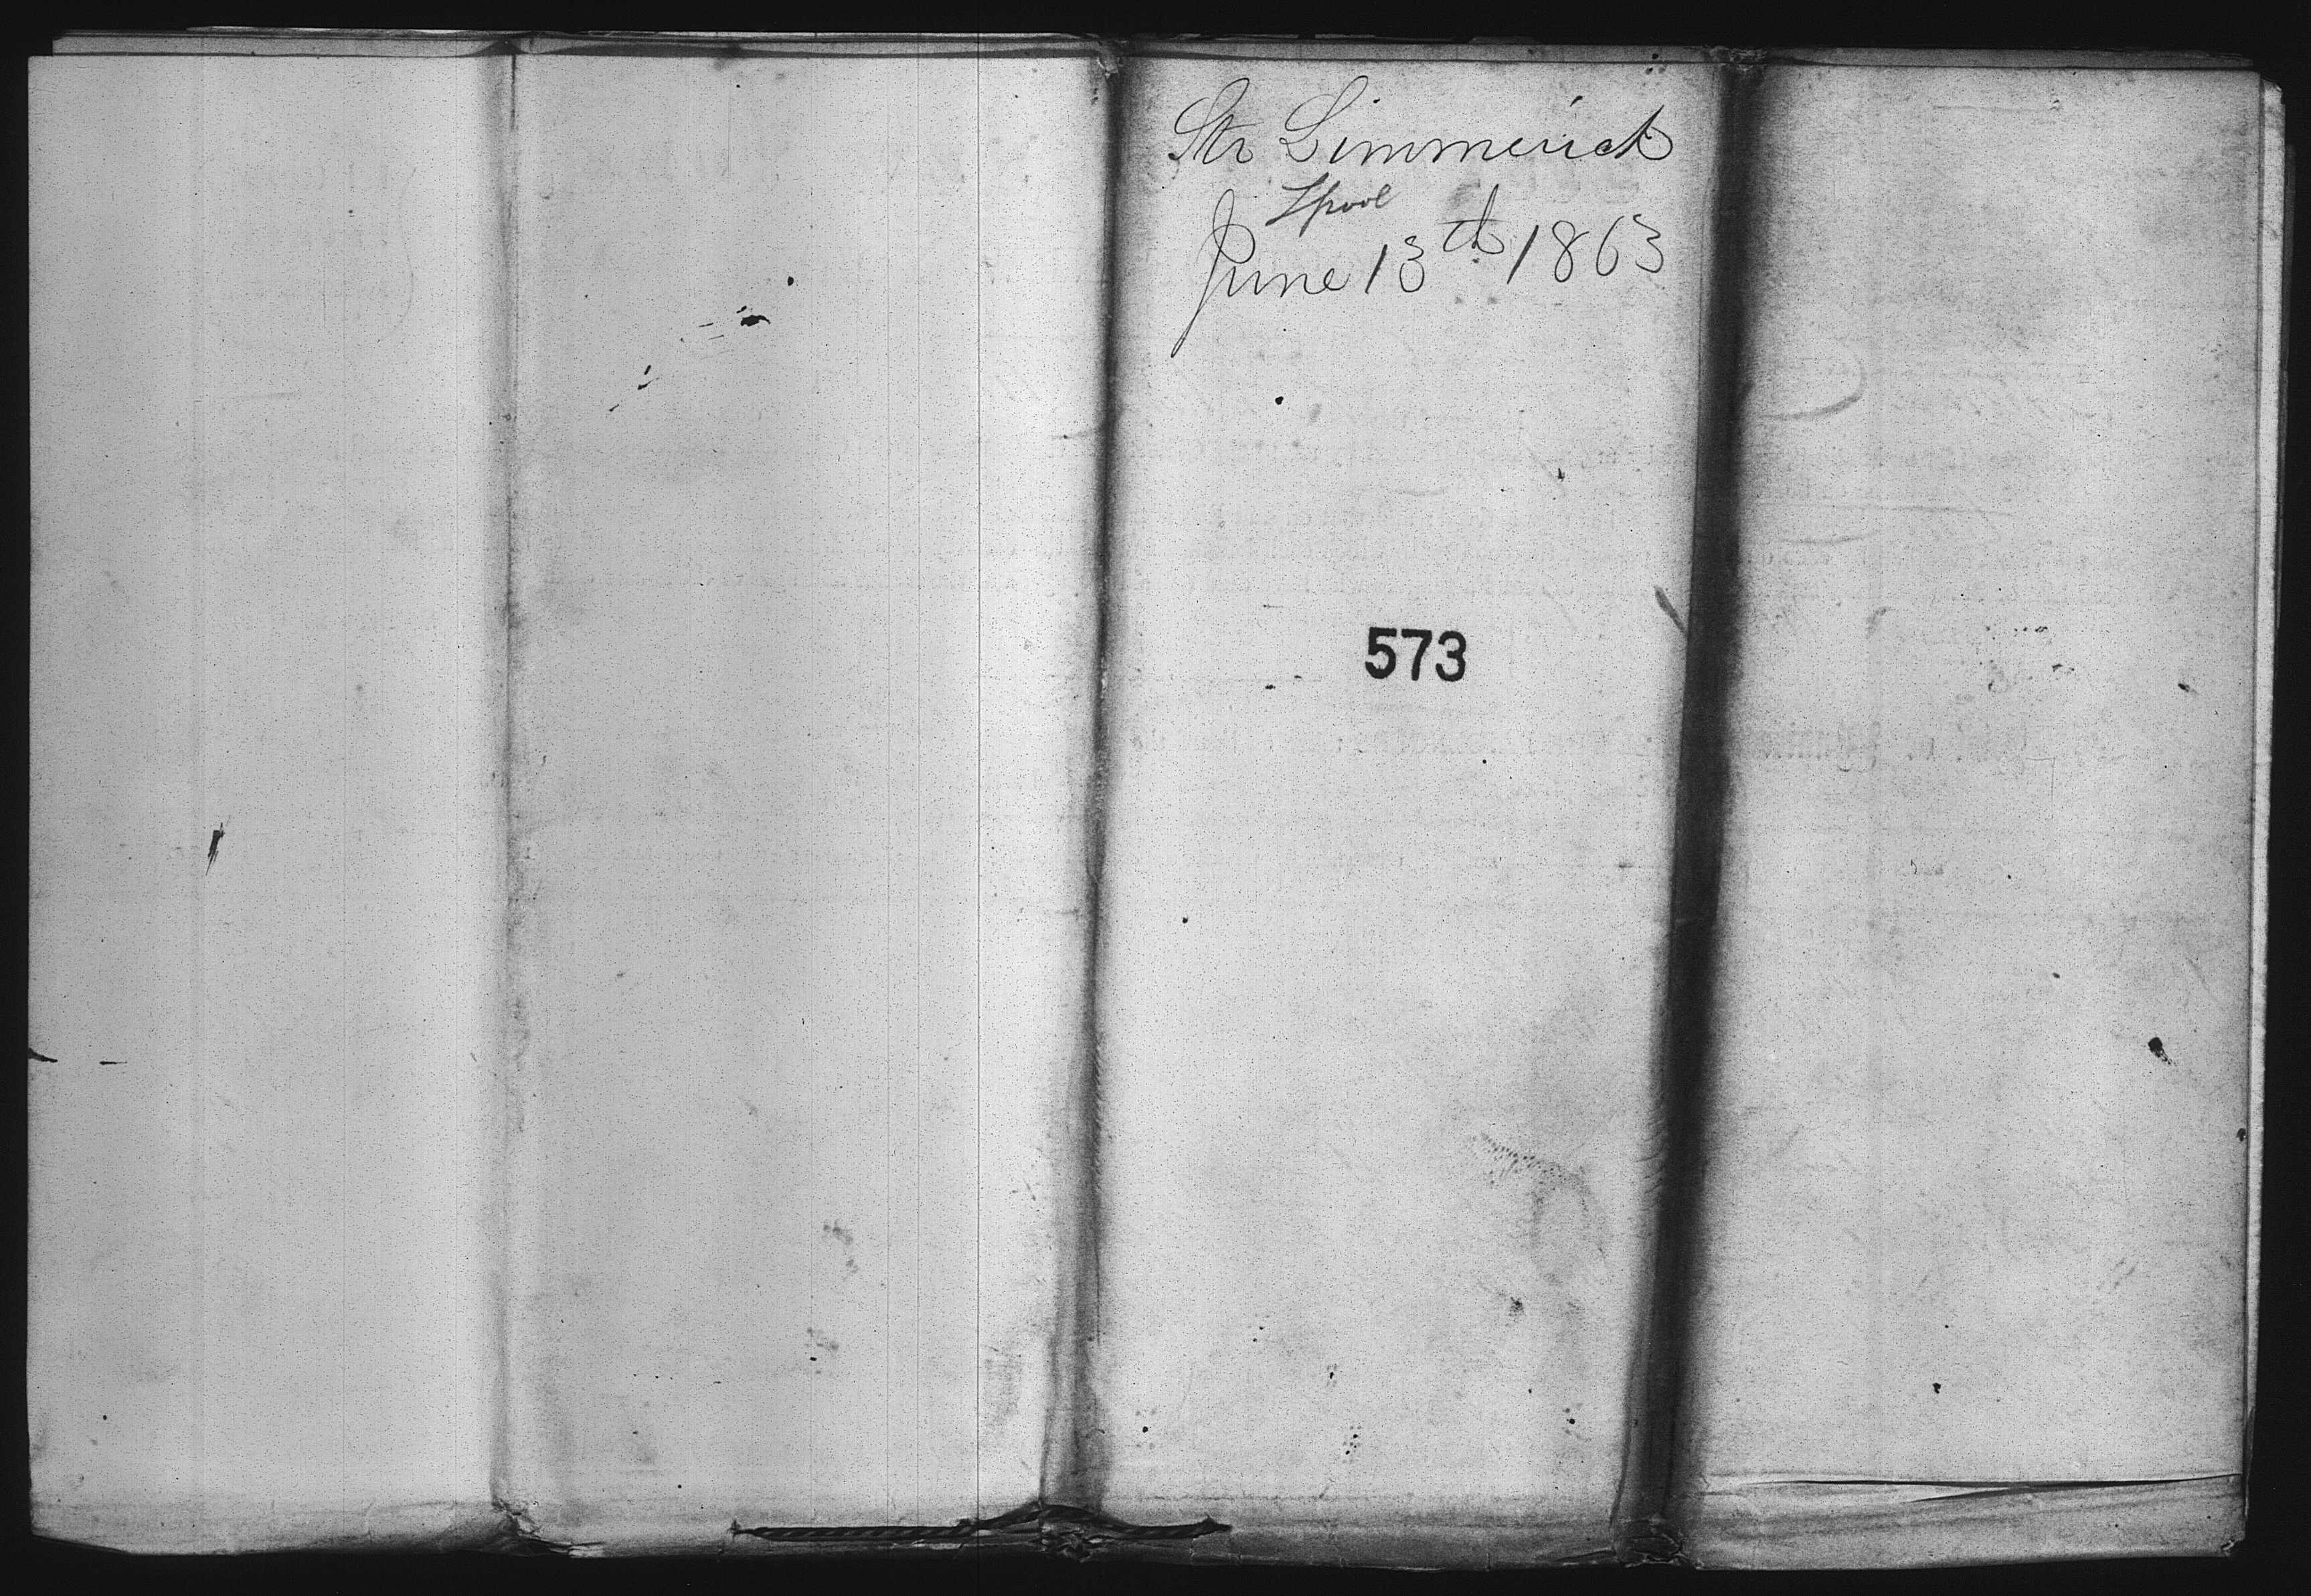 Str Limmerick
Lpool
June 13th 1863
573